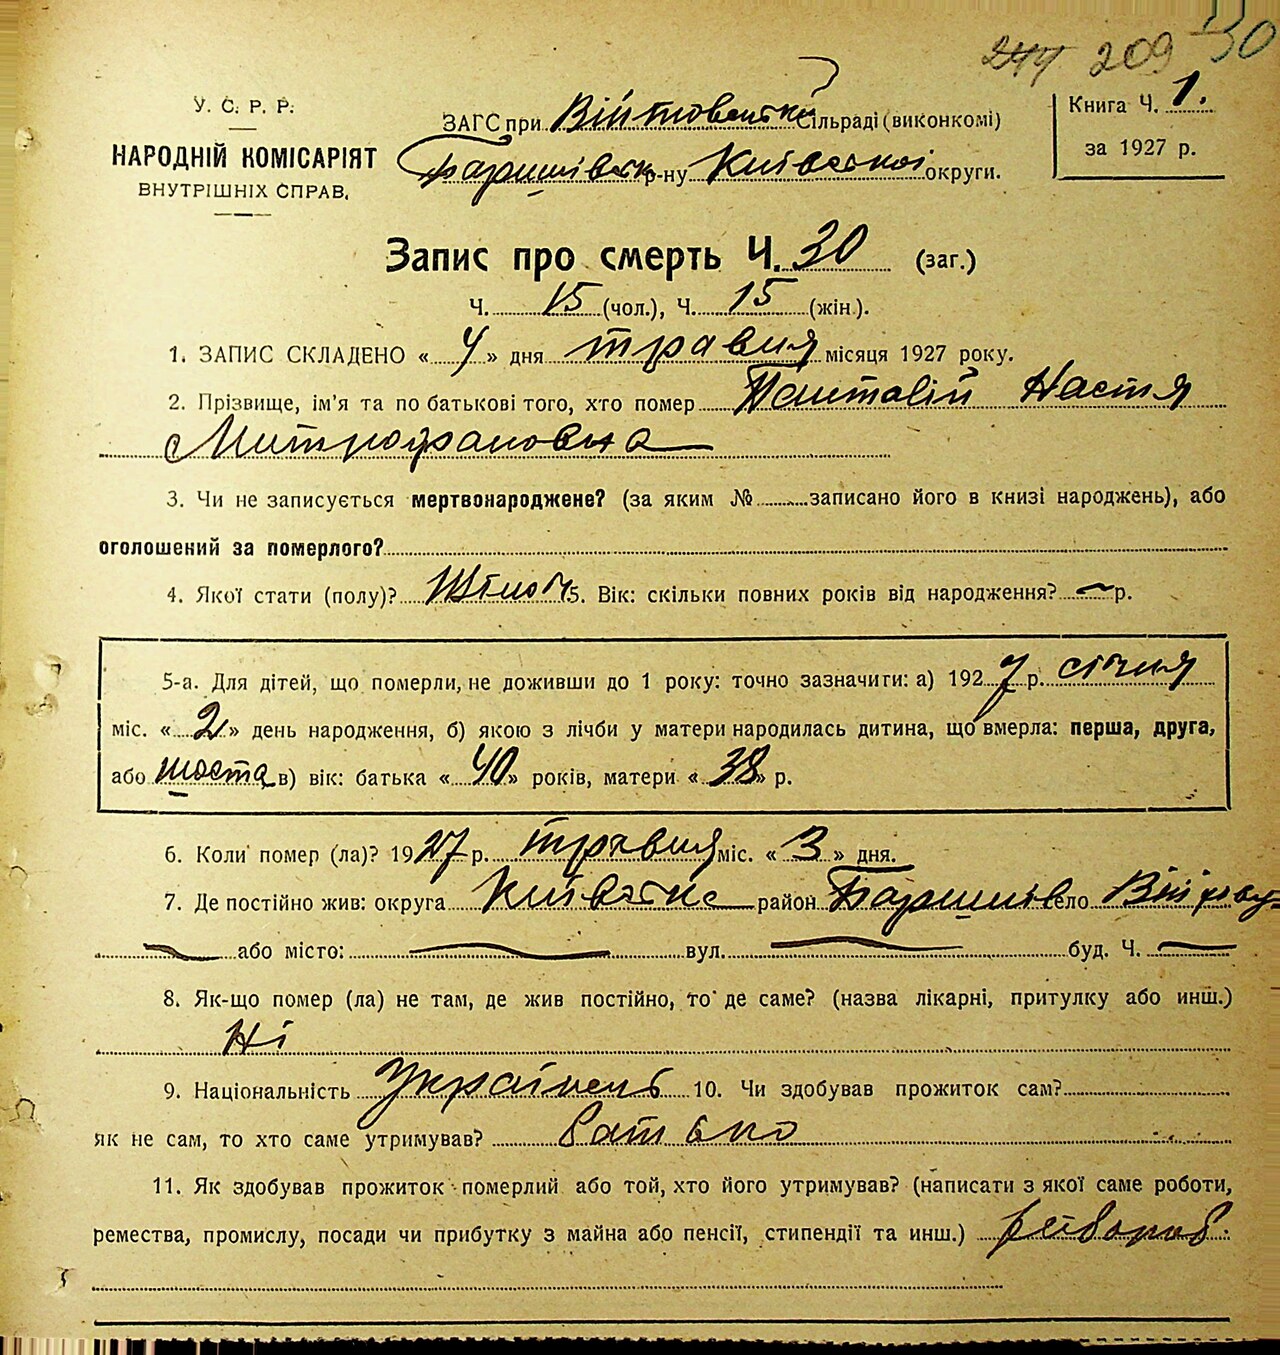 244 209 30
У. С. Р. Р.
НАРОДНІЙ КОМІСАРІЯТ
ВНУТРІШНІХ СПРАВ.
ЗАГС при Війтовецькій Сільраді (виконкомі)
Баришівськ р-ну Київської округи.
Книга Ч. 1.
за 1927 р.
Запис про смерть Ч. 30 (заг.)
Ч. 15 (чол.), Ч. 15 (жін.).
1. ЗАПИС СКЛАДЕНО « 4 » дня травня місяця 1927 року.
2. Прізвище, ім'я та по батькові того, хто помер Панталій Настя
Митрофановна
3. Чи не записується мертвонароджене? (за яким № записано його в книзі народжень), або
оголошений за померлого?
4. Якої стати (полу)? Жіноч 5. Вік: скільки повних років від народження? — р.
5-а. Для дітей, що померли, не доживши до 1 року: точно зазначити: а) 1927 р. січня
міс. « 2 » день народження, б) якою з лічби у матери народилась дитина, що вмерла: перша, друга,
або шоста в) вік: батька « 40 » років, матери « 38 » р.
6. Коли помер (ла)? 1927 р. травня міс. « 3 » дня.
7. Де постійно жив: округа Київська район Баришів село
— або місто: — вул. — буд. Ч. —
8. Як-що помер (ла) не там, де жив постійно, то де саме? (назва лікарні, притулку або инш.)
Ні
9. Національність Українець 10. Чи здобував прожиток сам?
як не сам, то хто саме утримував? батько
11. Як здобував прожиток померлий або той, хто його утримував? (написати з якої саме роботи,
ремества, промислу, посади чи прибутку з майна або пенсії, стипендії та инш.) хлібороб